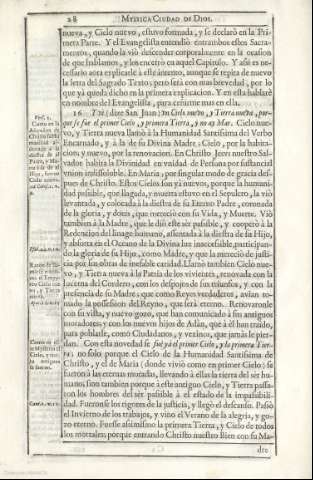 28 MYSTICA CIUDAD DE DIOS.
nueva, y Cielo nuevo, estuvo formada, y se declarò en la Pri-
mera Parte. Y el Evangelista entendiò entrambos estos Sacra-
mentos, quando la viò descender corporalmente en la ocasion
de que hablamos, y los encerrò en aquel Capitulo. Y assi es ne-
cessario aora explicarle à este intento, aunque se repita de nuevo
la letra del Sagrado Texto; pero serà con mas brevedad, por lo
que yà queda dicho en la primera explicacion. Y en esta hablarè
en nombre del Evangelista, para ceñirme mas en ella.
16 Y vì (dize San Juan) un Cielo nuevo, y Tierra nueva, por-
que se fue el primer Cielo, y primera Tierra, y no ay Mar. Cielo nue-
vo, y Tierra nueva llamò à la Humanidad Santissima del Verbo
Encarnado, y à la de su Divina Madre; Cielo, por la habita-
cion, y nuevo, por la renovacion. En Christo Jesus nuestro Sal-
vador habita la Divinidad en unidad de Persona por substancial
union indissoluble. En Maria, por singular modo de gracia des-
pues de Christo. Estos Cielos son yà nuevos, porque la humani-
dad passible, que llagada, y muerta estuvo en el Sepulcro, la viò
levantada, y colocada à la diestra de su Eterno Padre, coronada
de la gloria, y dotes, que mereciò con su Vida, y Muerte. Viò
tambien à la Madre, que le diò este sèr passible, y cooperò à la
Redencion del linage humano, assentada à la diestra de su Hijo,
y absorta en el Oceano de la Divina luz inaccessible, participan-
do la gloria de su Hijo, como Madre, y que la mereciò de justi-
cia por sus obras de inefable caridad. Llamò tambien Cielo nue-
vo, y Tierra nueva à la Patria de los vivientes, renovada con la
lucerna del Cordero, con los despojos de sus triunfos, y con la
presencia de su Madre; que como Reyes verdaderos, avian to-
mado la possession del Reyno, que serà eterno. Renovaronle
con su vista, y nuevo gozo, que han comunicado à sus antiguos
moradores, y con los nuevos hijos de Adàn, que à èl han traìdo,
para poblarle, como Ciudadanos, y vezinos, que jamàs le pier-
dan. Con esta novedad se fuè yà el primer Cielo, y la primera Tier-
ra: no solo porque el Cielo de la Humanidad Santissima de
Christo, y el de Maria (donde viviò como en primer Cielo) se
fueron à las eternas moradas, llevando à ellas la tierra del sèr hu-
mano, sino tambien porque à este antiguo Cielo, y Tierra passa-
ron los hombres del sèr passible à el estado de la impassibili-
dad. Fueronse los rigores de la justicia, y llegò el descanso. Passò
el Invierno de los trabajos, y vino el Verano de la alegria, y go-
zo eterno. Fuesse assimismo la primera Tierra, y Cielo de todos
los mortales; porque entrando Christo nuestro Bien con su Ma-
dre